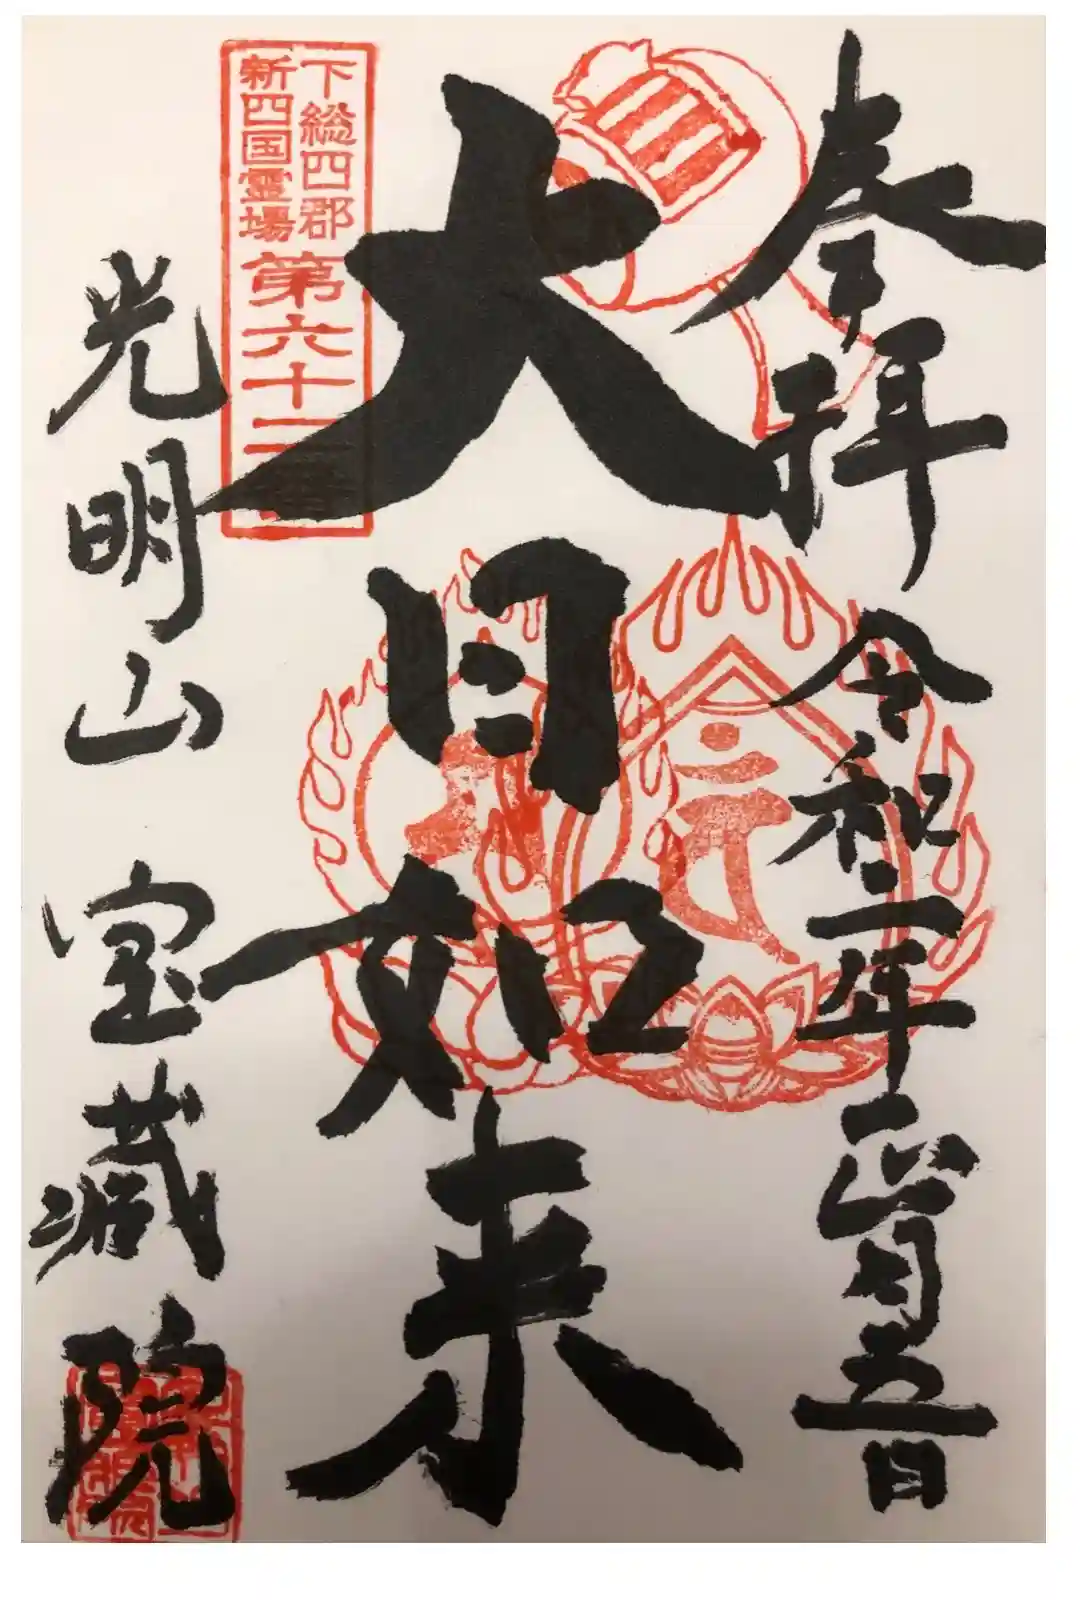 奉拝 令和二年正月五日
大日如来
下総四郡
新四国霊場 第六十二番
光明山 宝蔵院